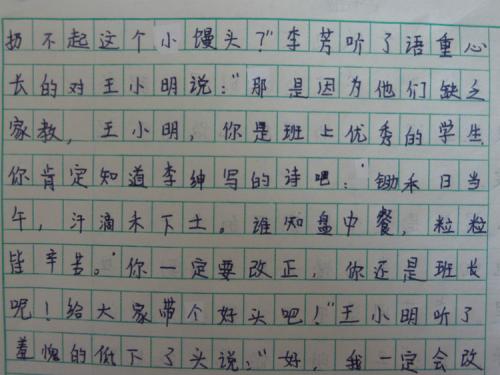 扔不起这个小馒头？”李芳听了语重心
长的对王小明说：“那是因为他们缺乏
家教，王小明，你是班上优秀的学生，
你肯定知道李绅写的诗吧：‘锄禾日当
午，汗滴禾下土。谁知盘中餐，粒粒
皆辛苦。’你一定要改正，你还是班长
呢！给大家带个好头吧！”王小明听了
羞愧的低下了头说：“好，我一定会改